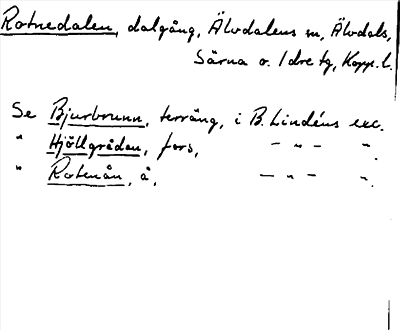 Rotnedalen, dalgång, Älvdalens sn, Älvdals,
Särna o. Idre tg, Kopp. l.
Se Bjurbrunn, terräng, i B. Lindéns exc.
" Hjöllgråden, fors, – " – ".
" Rotenån, å, – " – ".